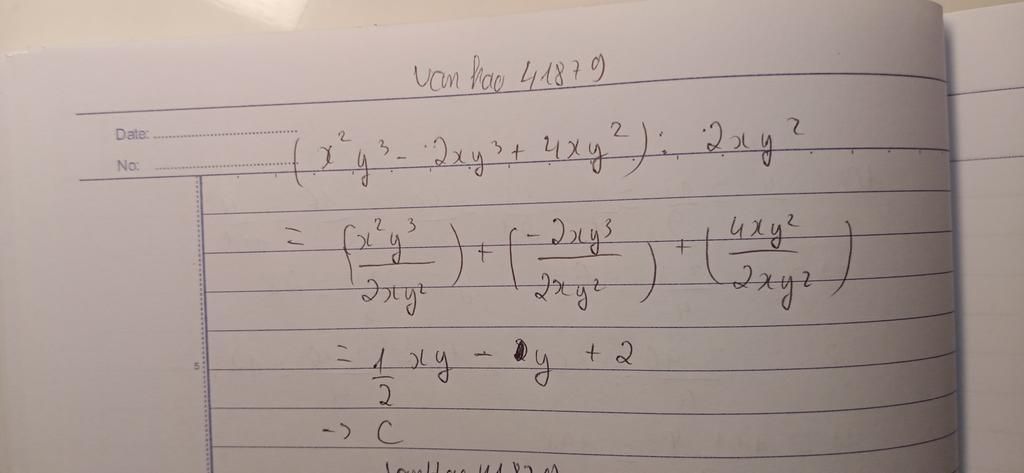 vanhao 41879
Date:
No:
(x²y³ - 2xy³ + 4xy²) : 2xy²
= (x²y³/2xy²) + (-2xy³/2xy²) + (4xy²/2xy²)
= 1/2 xy - y + 2
5
-> C